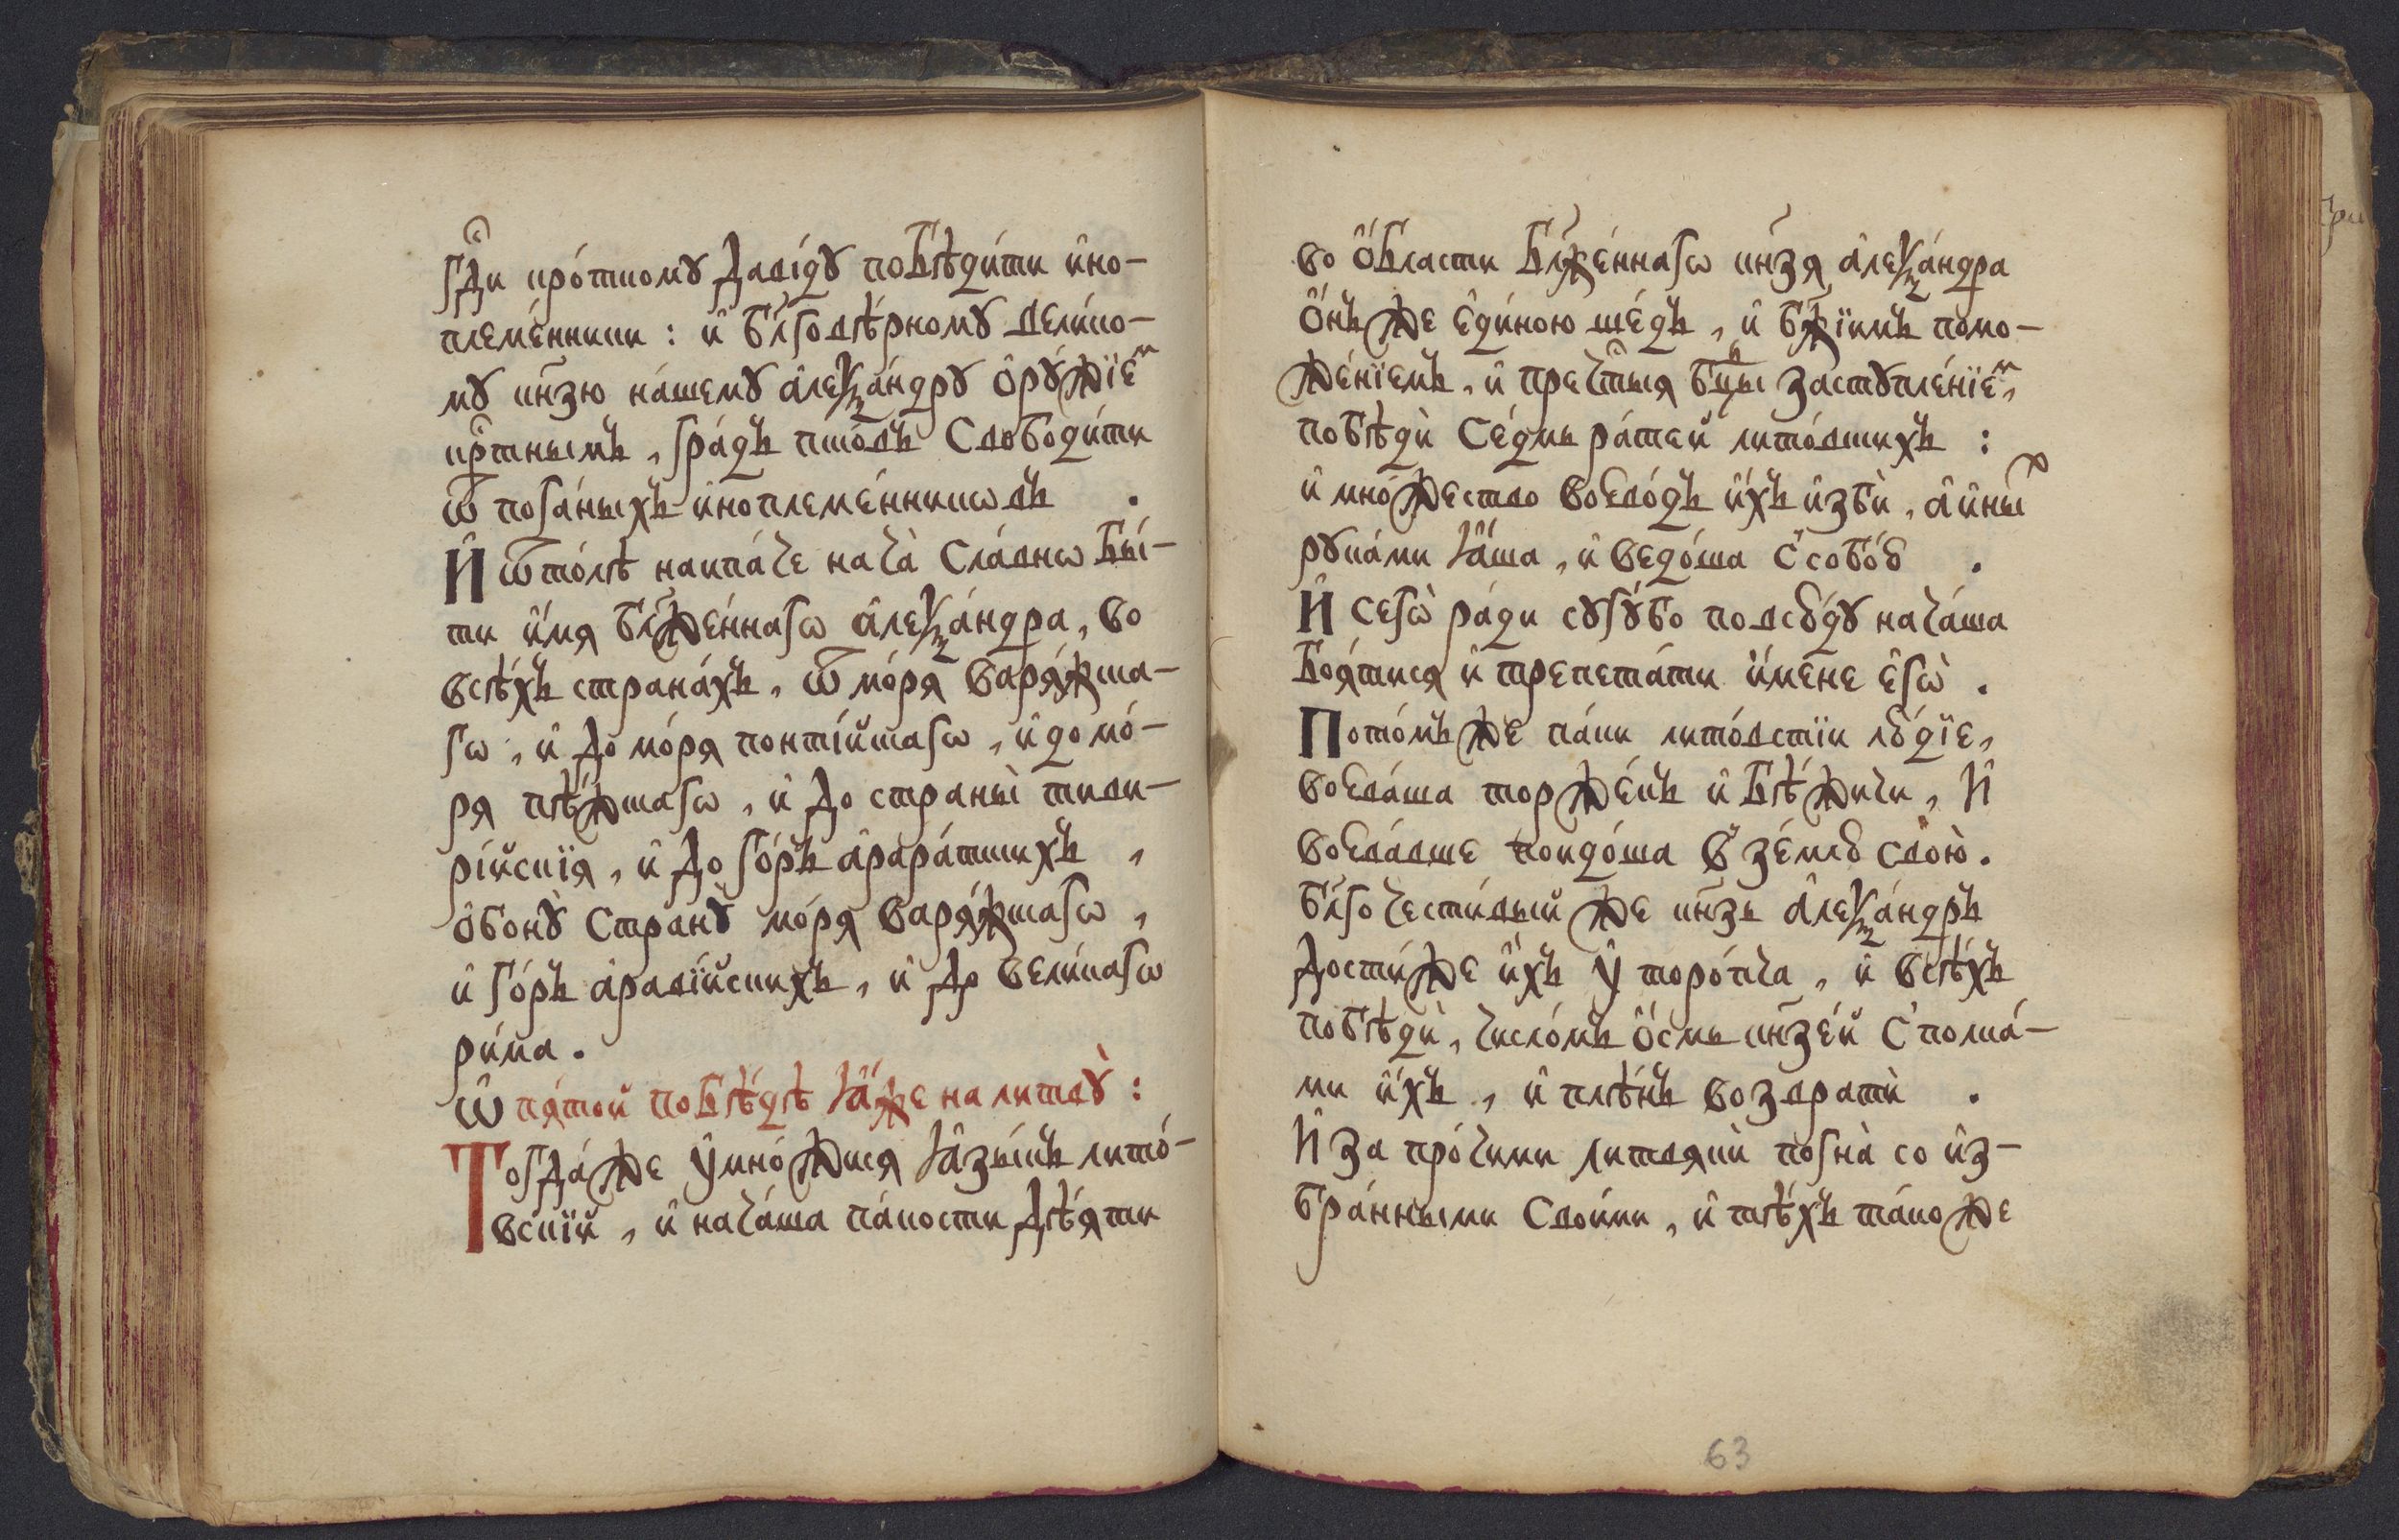 гдⷭ҇и кро́ткомꙋ Даві́дꙋ побѣди́ти и҆но-
племе́нники : и҆ бл҃говѣ́рномꙋ вели́ко-
мꙋ кн҃зю на́шемꙋ а҆леѯа́ндрꙋ ѻ҆рꙋ́жїеⷨ
крⷭ҇тнымъ , гра́дъ пско́въ Свободи́ти
ѿ пога́ныхъ и҆ноплеме́нникѡвъ .
И҆ ѿто́лѣ наипа́че нача̀ Сла́внѡ Бы́-
ти и҆́мя бл҃же́ннагѡ а҆леѯа́ндра , во
всѣ́хъ страна́хъ , ѿ мо́ря варя́жска-
гѡ , и҆ до мо́ря понті́йскагѡ , и҆ до мо́-
ря пѣ́жскагѡ , и҆ до страны̀ тиве-
рі́йскїя , и҆ до го́ръ а҆рара́тскихъ ,
ѻ҆бонꙋ̀ Странꙋ̀ мо́ря варя́жскагѡ ,
и҆ го́ръ а҆раві́йскихъ , и҆ до вели́кагѡ
ри́ма .
Ѡ҆ пя́той побѣ́дѣ ꙗ҆́же на литвꙋ̀ :
Тогда́ же ᲂу҆мно́жися ꙗ҆зы́къ лито́-
вскїй , и҆ нача́ша па́кости дѣ́яти
во ѻ҆́бласти бл҃же́ннагѡ кн҃зя а҆леѯа́ндра
ѻ҆́нъ же є҆ди́ною ше́дъ , и҆ бж҃їимъ помо-
же́нїемъ , и҆ преч́тⷭ҇ыя бц҃ы застꙋпле́нїеⷨ ,
побѣдѝ Се́дмь ра́тей лито́вскихъ :
и҆ мно́жество воево́дъ и҆́хъ и҆збѝ , а҆ и҆ныⷯ
рꙋка́ми ꙗ҆́ша , и҆ ведо́ша с̾собо́ю .
И҆ сегѡ̀ ра́ди сꙋгꙋ́бо повсю́дꙋ нача́ша
Боя́тися и҆ трепета́ти и҆́мене є҆гѡ̀ .
Пото́мъ же па́ки лито́встїи лю́дїе ,
воева́ша торже́къ и҆ Бѣ́жичи , И҆
воева́вше поидо́ша в̾ зе́млю свою̀ .
бл҃гочести́вый же кн҃зь а҆леѯа́ндръ
Дости́же и҆́хъ ᲂу҆ торо́пча , и҆ всѣ́хъ
побѣдѝ , число́мъ ѻ҆́смь кн҃зе́й с̾ полка́-
ми и҆́хъ , и҆ плѣ́нъ возвратѝ .
И҆ за про́чими литвякѝ погна̀ со и҆з-
бра́нными Свои́ми , и҆ тѣ́хъ та́коже
63